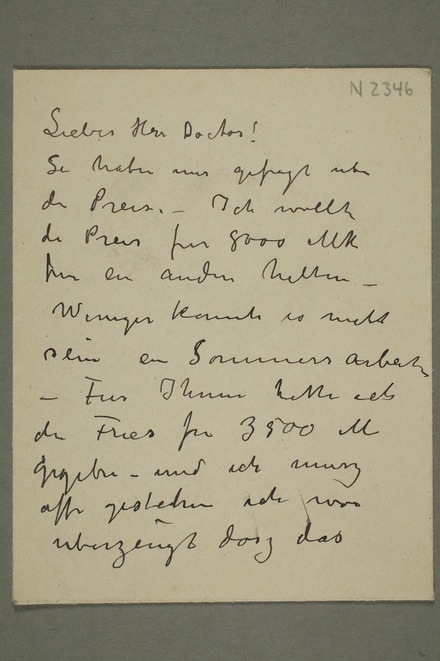 N 2346
Lieber Herr Doctor!
Se haben mir gefragt ube
de Preis. – Ich wollte
de Preis fur 8000 Mk
fur en anden halten –
Weniger konnte es nicht
sein en Sommers arbeit
– Fur Ihnen hatte ich
de Fries fur 3500 M
gegeben – und ich musz
offe gestehen ich war
uberzeugt dasz das